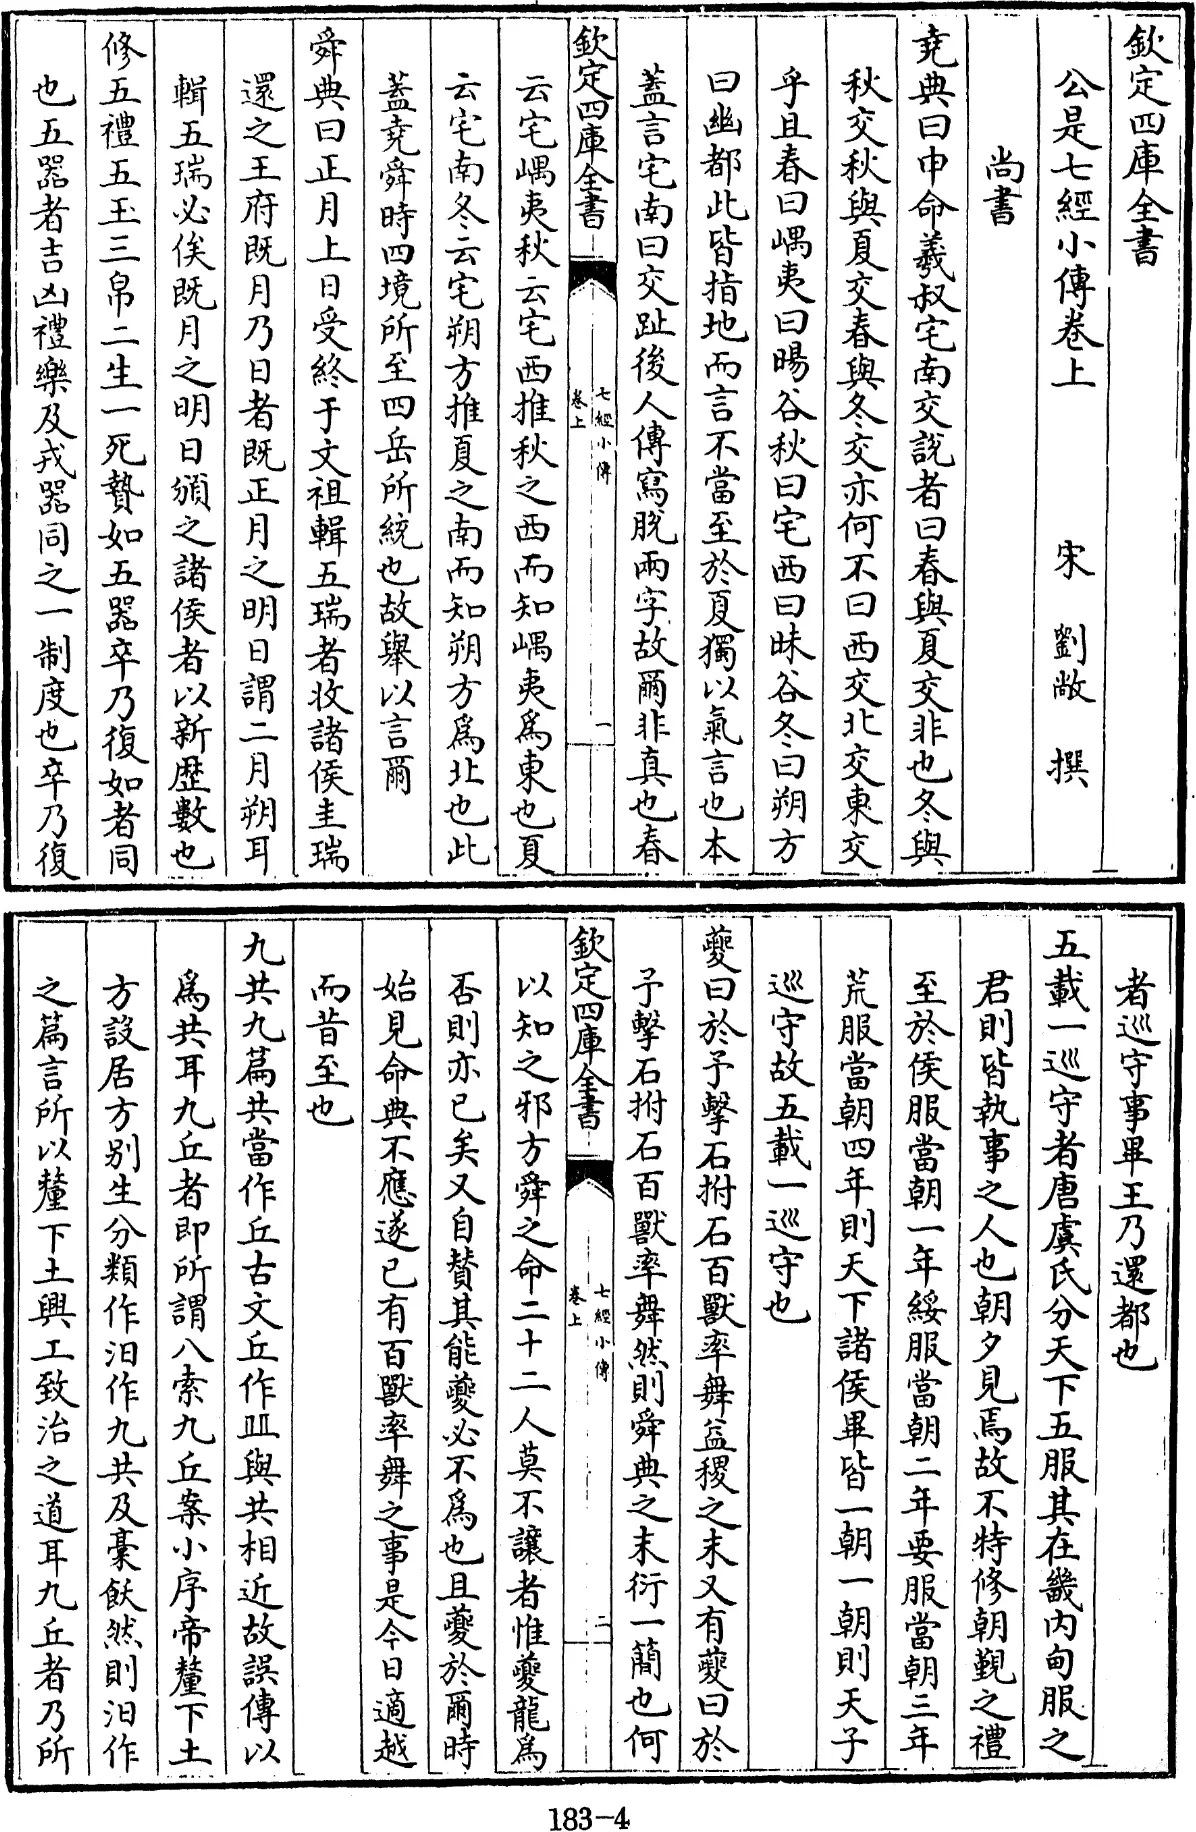 欽定四庫全書
公是七經小傳卷上　宋　劉敞　撰
尚書
堯典曰申命羲叔宅南交説者曰春與夏交非也冬與
秋交秋與夏交春與冬交亦何不曰西交北交東交
乎且春曰嵎夷曰暘谷秋曰宅西曰昧谷冬曰朔方
曰幽都此皆指地而言不當至於夏獨以氣言也本
蓋言宅南曰交趾後人傳寫脫兩字故爾非真也春
欽定四庫全書
七經小傳
卷上
一
云宅嵎夷秋云宅西推秋之西而知嵎夷爲東也夏
云宅南冬云宅朔方推夏之南而知朔方爲北也此
蓋堯舜時四境所至四岳所統也故舉以言爾
舜典曰正月上日受終于文祖輯五瑞者收諸侯圭瑞
還之王府既月乃日者既正月之明日謂二月朔耳
輯五瑞必俟既月之明日頒之諸侯者以新歴數也
修五禮五玉三帛二生一死贄如五器卒乃復如者同
也五器者吉凶禮樂及戎器同之一制度也卒乃復
者巡守事畢王乃還都也
五載一巡守者唐虞氏分天下五服其在畿内甸服之
君則皆執事之人也朝夕見焉故不特修朝覲之禮
至於侯服當朝一年綏服當朝二年要服當朝三年
荒服當朝四年則天下諸侯畢皆一朝一朝則天子
巡守故五載一巡守也
夔曰於予擊石拊石百獸率舞益稷之末又有夔曰於
予擊石拊石百獸率舞然則舜典之末衍一簡也何
欽定四庫全書
七經小傳
卷上
二
以知之邪方舜之命二十二人莫不讓者惟夔龍爲
否則亦已矣又自贊其能夔必不爲也且夔於爾時
始見命典不應遂已有百獸率舞之事是今日適越
而昔至也
九共九篇共當作丘古文丘作㠳與共相近故誤傳以
爲共耳九丘者即所謂八索九丘案小序帝釐下土
方設居方别生分類作汨作九共及槀飫然則汨作
之篇言所以釐下土興工致治之道耳九丘者乃所
183-4